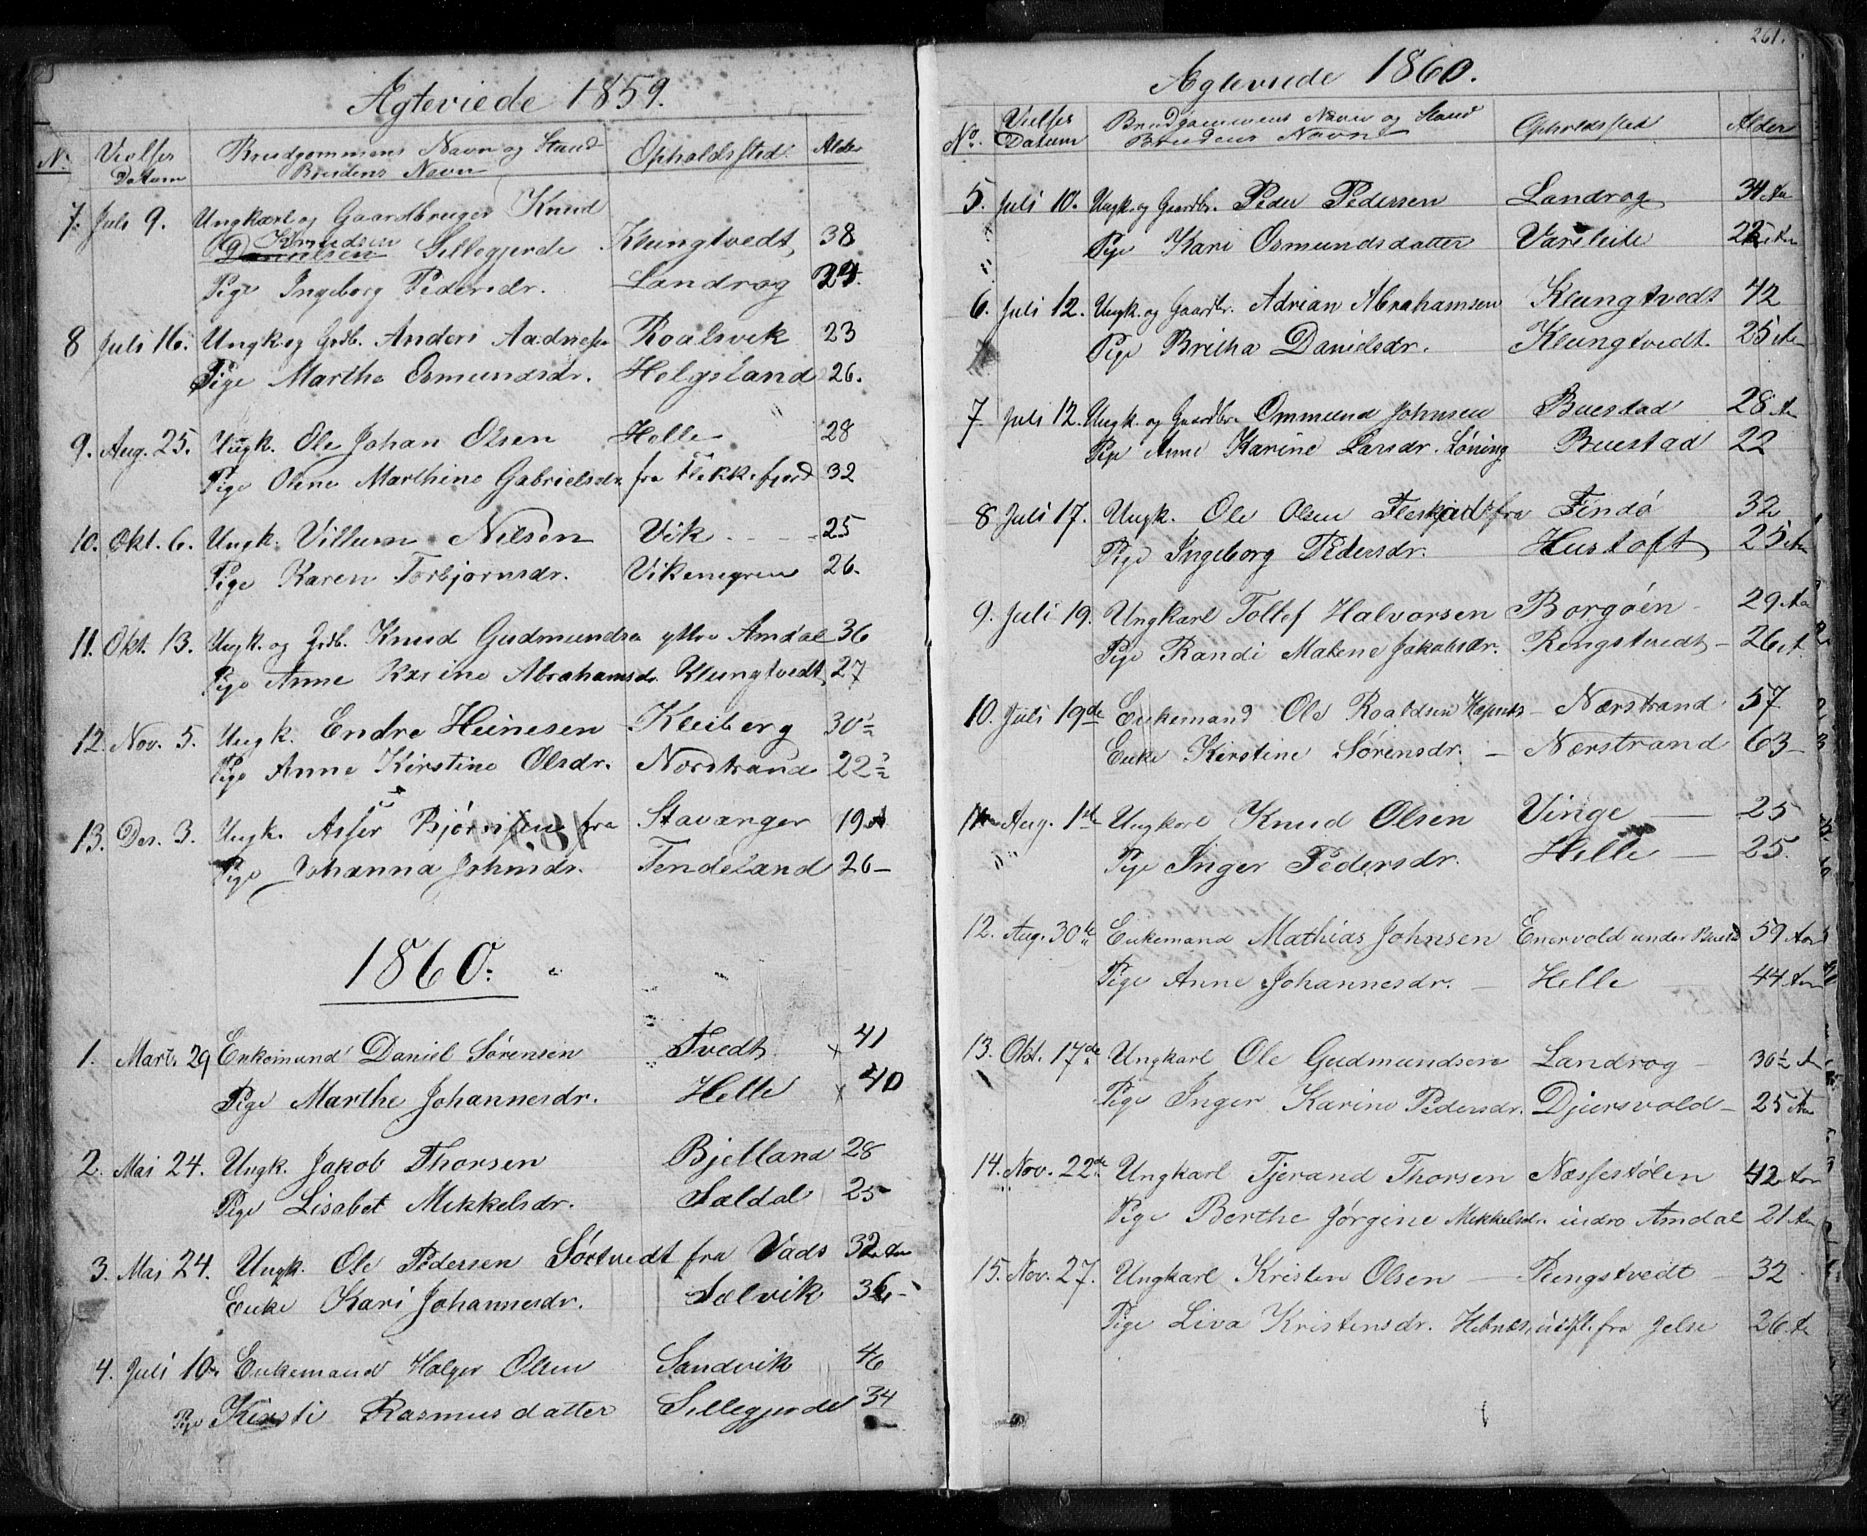 Ægteviede 1859.
No. Vielses Datum Brudgommens Navn og Stand Brudens Navn Opholdssted. Alder
7. Juli 9. Ungkarl og Gaardbruger Knud
Knudsen Sillegjerde Klungtvedt, 38
Pige Ingeborg Pedersdr. Landrog
8 Juli 16. Ungk. og Grdb. Anders Aadnesen Roalsvik 23
Pige Marthe Osmundsdr. Helgeland 26.
9. Aug. 25. Ungk. Ole Johan Olsen Helle 28
Pige Oline Marthine Gabrielsdr. fra Flekkefjord 32
10. Okt. 6. Ungk. Villum Nilsen Vik 25
Pige Karen Torbjørnsdr. Vikenegren 26.
11. Okt. 13. Ungk. og Grdb. Knud Gudmundsen yttre Amdal 36
Pige Anne Karine Abrahamsdr. Klungtvedt, 27
12. Nov. 5. Ungk. Endre Heinesen Kleiberg 30½
Pige Anne Kirstine Olsdr. Nærstrand 22½
13. Des. 3. Ungk. Asser Bjørnsen fra Stavanger 19
Pige Johanna Johnsdr. Tendeland 26–
1860.
1. Mart. 29 Enkemand Daniel Sørensen Tvedt. 41
Pige Marthe Johannesdr. Helle 40
2. Mai 24. Ungk. Jakob Thorsen Bjelland 28
Pige Lisabet Mikkelsdr. Saldal 25
3. Mai 24. Ungk. Ole Pedersen Sørtvedt fra Vads 32 Aar
Enke Kari Johannesdr. Salvik 36–
4. Juli 10. Enkemand Holger Olsen Sandvik 46
Pige Kirsti Rasmusdatter Sillegjerde 34
261.
Ægteviede 1860.
No. Vielses Datum Brudgommens Navn og Stand Brudens Navn Opholdssted Alder
5. Juli 10. Ungk. og Gaardbr. Peder Pedersen Landrog 34 Aar
Pige Kari Osmundsdatter Vareleite 22 Aar
6. Juli 12. Ungk. og Gaardbr. Adrian Abrahamsen Klungtvedt 42
Pige Britha Danielsdr. Klungtvedt. 25 Aar
7. Juli 12. Ungk. og Gaardbr. Ommund Johnsen Buestad 28 Aar
Pige Anne Karine Larsdr. Løning Buestad 22
8 Juli 17. Ungk. Ole Olsen fra Findø 32
Pige Ingeborg Pedersdr. Hustoft 25 Aar
9. Juli 19. Ungkarl Tollef Halvorsen Borgøen 29 Aar
Pige Randi Malene Jakobsdr. Rengstvedt – 26 A.
10. Juli 19de Enkemand Ole Roaldsen – Nærstrand 57
Enke Kirstine Sørensdr. – Nærstrand 63–
11 Aug. 1ste Ungkarl Knud Olsen Vinge — 25
Pige Inger Pedersdr. Helle — 25.
12. Aug. 30te Enkemand Mathias Johnsen Enervold under Buestad 59 Aar
Pige Anne Johannesdr. – Helle 44 Aar
13. Okt. 17de Ungkarl Ole Gudmundsen Landrog 30½ A
Pige Inger Karine Pedersdr. Djuersvold – 25 Aar
14. Nov. 22de Ungkarl Tjerand Thorsen Næssestølen 42 Aar
Pige Berthe Jørgine Mikkelsdr. indre Amdal 21 Aar
15. Nov. 27. Ungkarl Kristen Olsen – Rengstvedt – 32
Pige Liva Kristensdr. Hebnes, indfl. fra Jelse 26 A